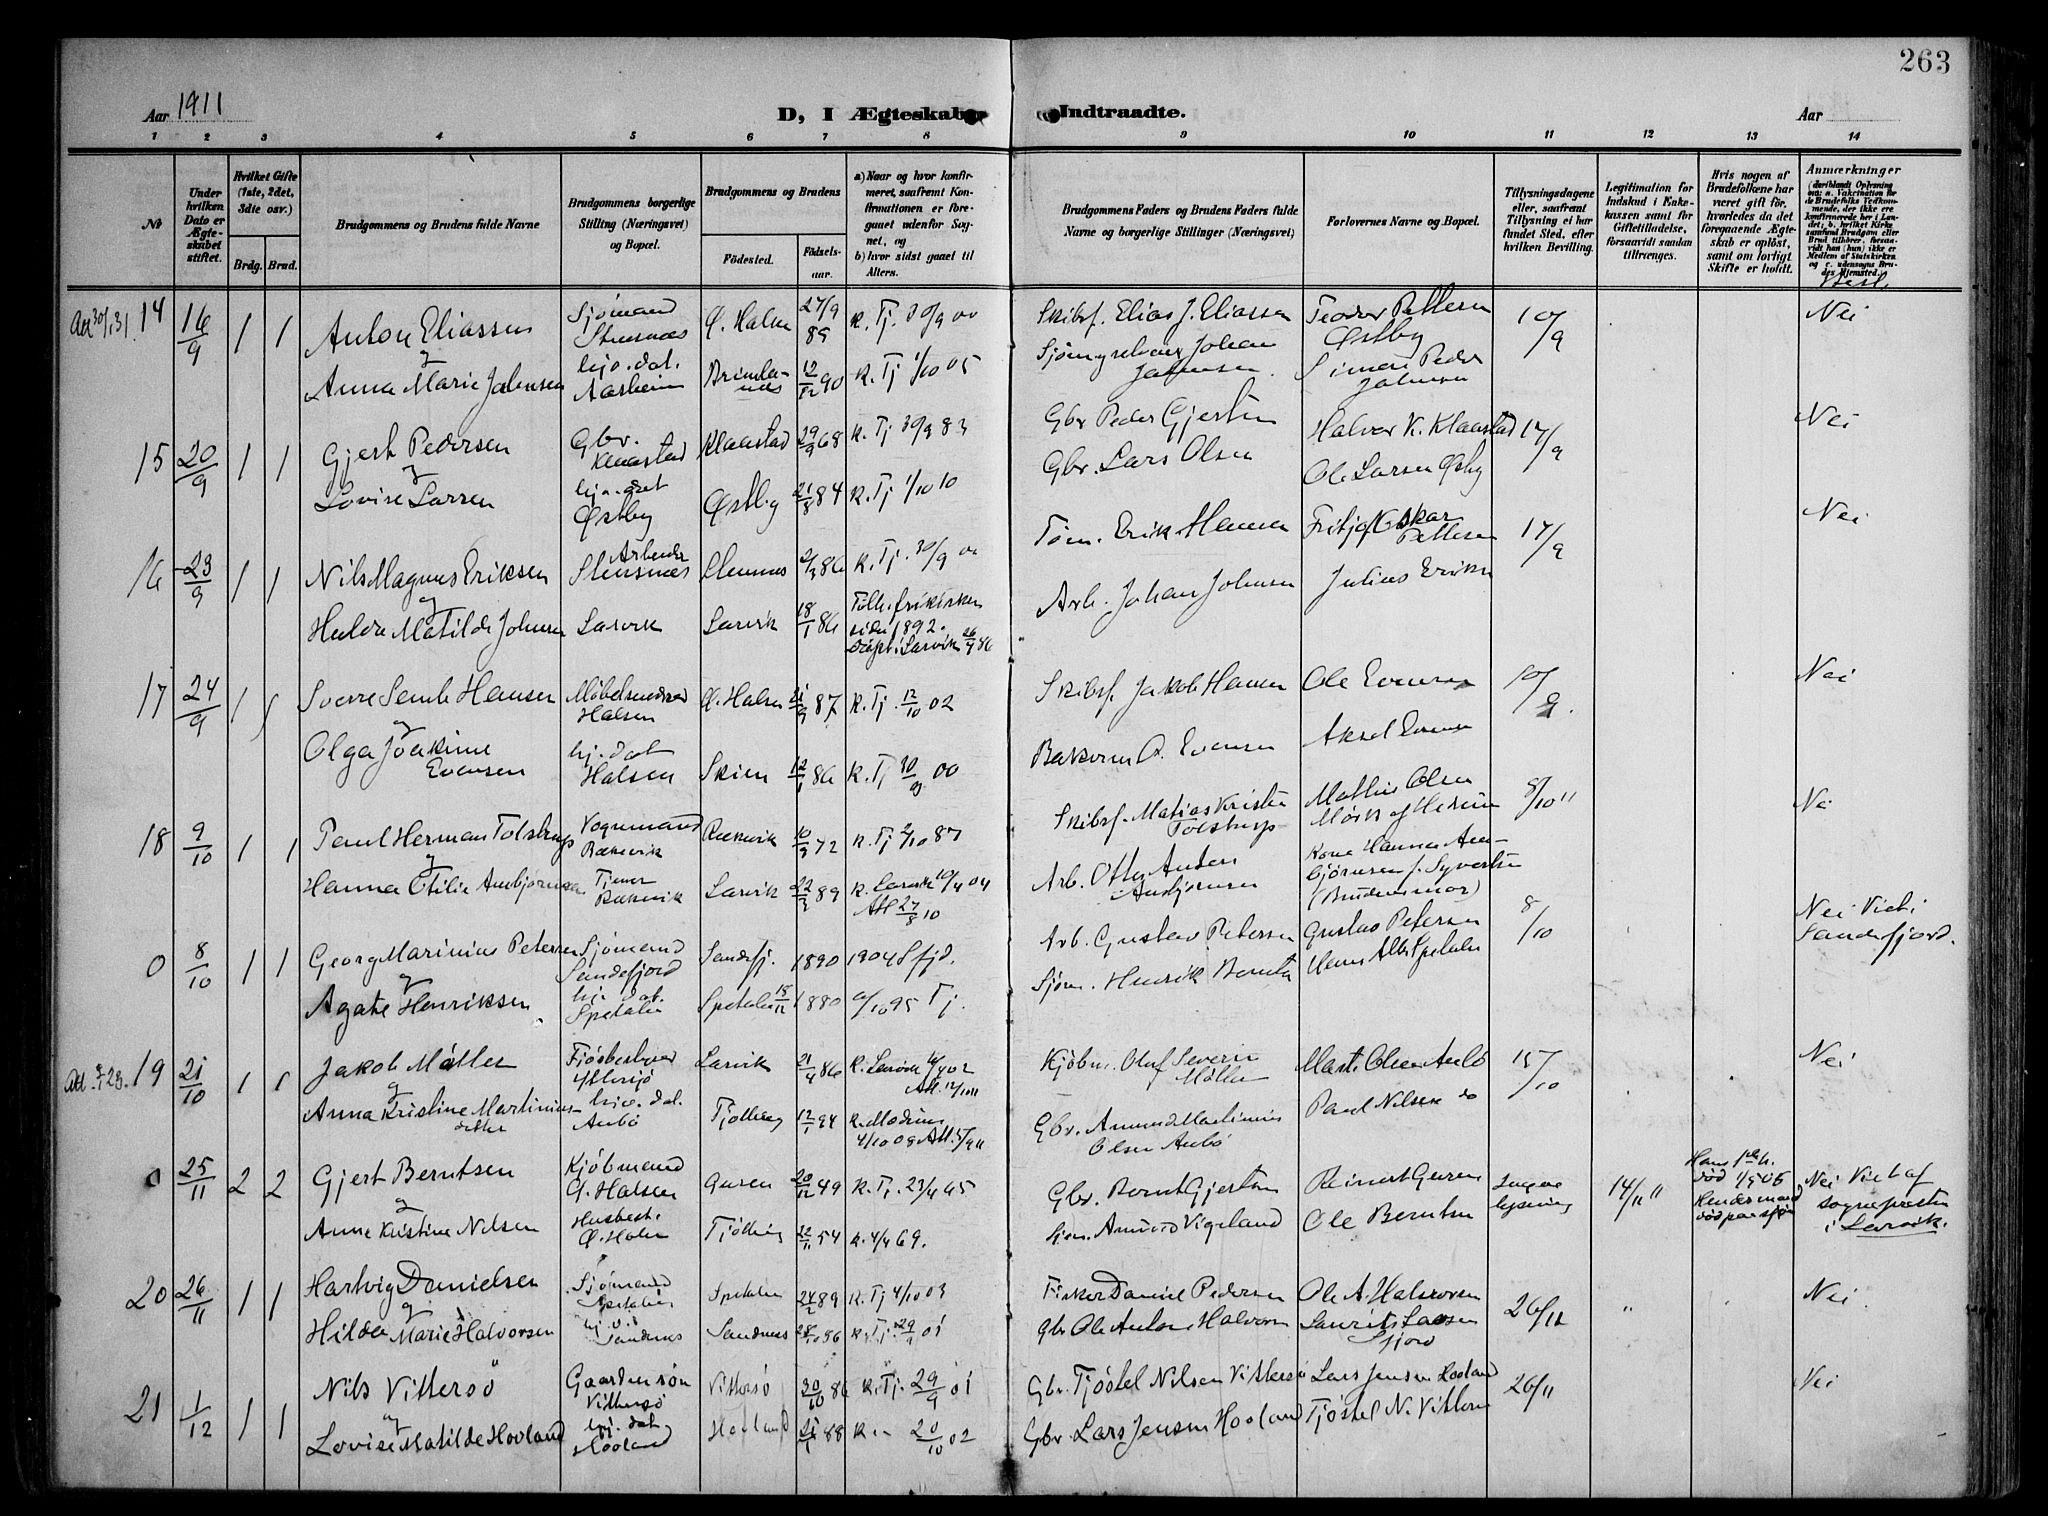 263
Aar 1911
D, I Ægteskab Indtraadte.
Aar
1 2 3 4 5 6 7 8 9 10 11 12 13 14
No
Under hvilken Dato er Ægteskabet stiftet.
Hvilket Gifte (1ste, 2det, 3dte osv.)
Brdg. Brud.
Brudgommens og Brudens fulde Navne
Brudgommens borgerlige Stilling (Næringsvei) og Bopæl.
Brudgommens og Brudens
Födested. Födselsaar.
a) Naar og hvor konfirmeret, saafremt Konfirmationen er foregaaet udenfor Sognet, og
b) hvor sidst gaaet til Alters.
Brudgommens Faders og Brudens Faders fulde Navne og borgerlige Stillinger (Næringsvei)
Forlovernes Navne og Bopæl.
Tillysningsdagene eller, saafremt Tillysning ei har fundet Sted, efter hvilken Bevilling.
Legitimation for Indskud i Enkekassen samt for Giftetilladelse, forsaavidt saadan tiltrænges.
Hvis nogen af Brudefolkene har været gift för, hvorledes da det foregaaende Ægteskab er oplöst, samt om lovligt Skifte er holdt.
Anmærkninger
14 16/9 1 1 Anton Eliassen Sjömand Stensnæs Ö. Halsen 27/9 89 K. Tj. 30/9 00 Skibsf. Elias J. Eliassen Teodor Pettersen Østby 10/9 Nei
og
Anna Marie Johnsen hjv. dat. Aasheim 12/12 90 K. Tj 1/10 05 Johan Johnsen Simon Peder Johnsen
15 20/9 1 1 Gjert Pedersen Gbr. Klaastad Klaastad 29/9 68 K. Tj 30/9 83 Gbr Peder Gjertsen Halvor K. Klaastad 17/9 Nei
og
Lovise Larsen Østby Østby 21/8 84 K. Tj 1/10 10 Gbr. Lars Olsen Ole Larsen Østby
16 23/9 1 1 Nils Magnus Eriksen Arbeider Stensnæs Stensnæs 2/3 86 K. Tj. 30/9 00 Töm. Erik Hansen Fritjof Oskar Pettersen 17/9 Nei
og
Hulda Matilde Johnsen Larvik Larvik 18/1 86 Tilh. frikirken siden 1892. Döpt i Larvik 26/9 86 Arb. Johan Johnsen Julius Eriksen
17 24/9 1 1 Sverre Semb Hansen Möbelsnedker Halsen Ø. Halsen 21/9 87 K. Tj. 12/10 02 Skibsf. Jakob Hansen Ole Evensen 10/9. Nei
og
Olga Joakime Evensen hj. dat Halsen Skien 12/1 86 K. Tj 30/9 00 O. Evensen Aksel Evensen
18 9/10 1 1 Paul Herman Tolstrup Vognmand Rækevik Rækevik 10/9 72 K. Tj 2/10 87 Skibsf. Matias Kristen Tolstrup Mathis Olsen 8/10 11 Nei
og
Hanna Otilie Anbjörnsen Tjener Rækevik Larvik 22/3 89 K. Larvik 10/4 04 Att 27/8 10 Arb. Otto Anton Anbjörnsen Kone Hanna Anbjörnsen f. Syvertsen (Brudens mor)
0 8/10 1 1 Georg Marinius Petersen Sjömand Sandefjord Sandefj. 1890 1904 Sfjd. Arb. Gustav Petersen Gustav Petersen 8/10 Nei Viet i Sandefjord.
og
Agate Henriksen hjv. dat. Spetalen Spetalen 18/11 1880 1/10 95 Tj. Sjöm. Henrik Berntsen Hans Alb. Spetalen
19 21/10 1 1 Jakob Möller Larvik 21/9 86 K. Larvik Att. 12/10 11 Kjöbm. Oluf Severin Möller Mart. Olsen Aulö 15/10 Nei
og
Anna Kristine Martiniusdatter hjv. dat. Aulö Tjölling 12/1 94 K. Modum 4/10 09 Att. 5/9 11 Gbr. Amund Martinius Olsen Aulö Paul Nilsen do
0 25/11 2 2 Gjert Berntsen Kjöbmand Ö. Halsen 20/12 49 K. Tj. 23/4 65 Gbr. Bernt Gjertsen Ingen lysning 14/11 11 Hans 1ste h. död Hendes mand död paa sjön Nei Viet af sognepresten i Larvik.
og
Anne Kristine Nilsen Husbest. Ö. Halsen Tjölling 22/11 54 K. 4/4 69. Sjöm. Amund Vigeland Ole Berntsen
20 26/11 1 1 Hartvig Danielsen Sjömand Spetalen Spetalen 24/2 89 K. Tj 4/10 03 Fisker Daniel Pedersen Ole A. Halvorsen 26/11 Nei
og
Hilda Marie Halvorsen Sandnes Sandnæs 28/10 86 K. Tj. 29/9 01 Gbr Ole Anton Halvorsen Laurits Larsen
21 1/12 1 1 Nils Vittersö Gaardmsön Vittersö Vittersö 30/10 86 K. Tj. 29/9 01 Gbr. Tjöstel Nilsen Vittersö Lars Jensen Hovland 26/11 Nei
og
Lovise Matilde Hovland hj. dat Hovland Hovland 21/1 88 K " 20/10 02 Gbr. Lars Jensen Hovland Tjöstel N. Vittersö